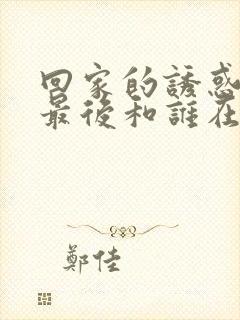 回家的誘惑
最後和誰在
鄭佳